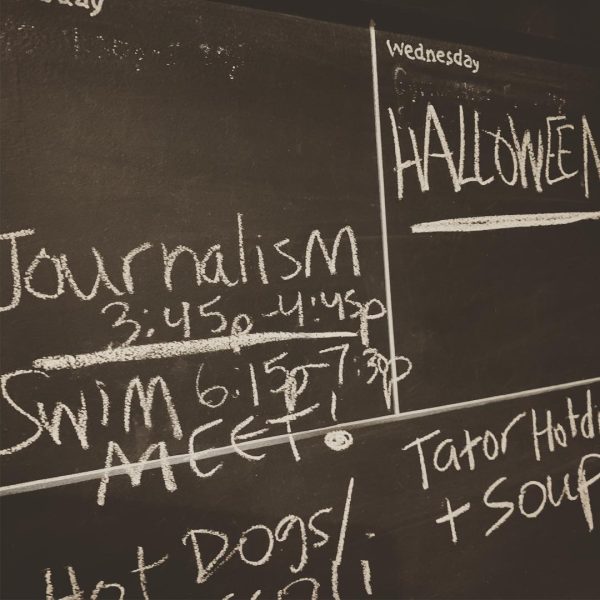 Wednesday
HALLOWEEN
Journalism
3:45p-4:45p
Swim 6:15p-7:30p
MEET!
Tator Hotdi
+ Soup
Hot Dogs/